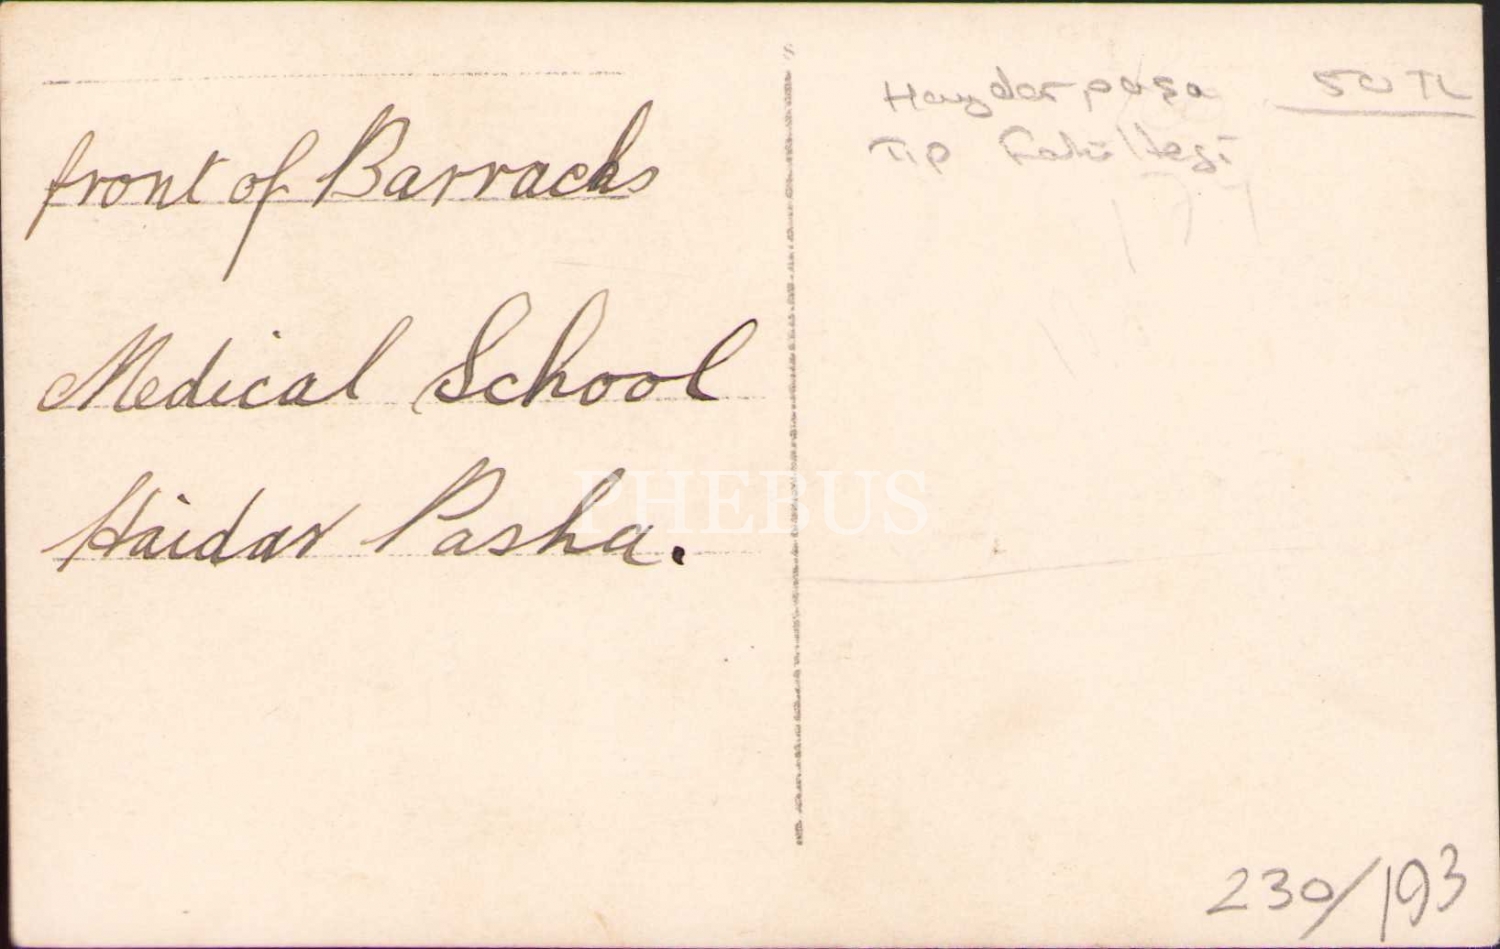 front of Barracks
Medical School
Haidar Pasha.
Haydarpaşa 50 TL
Tıp Fakültesi
PHEBUS
230/193